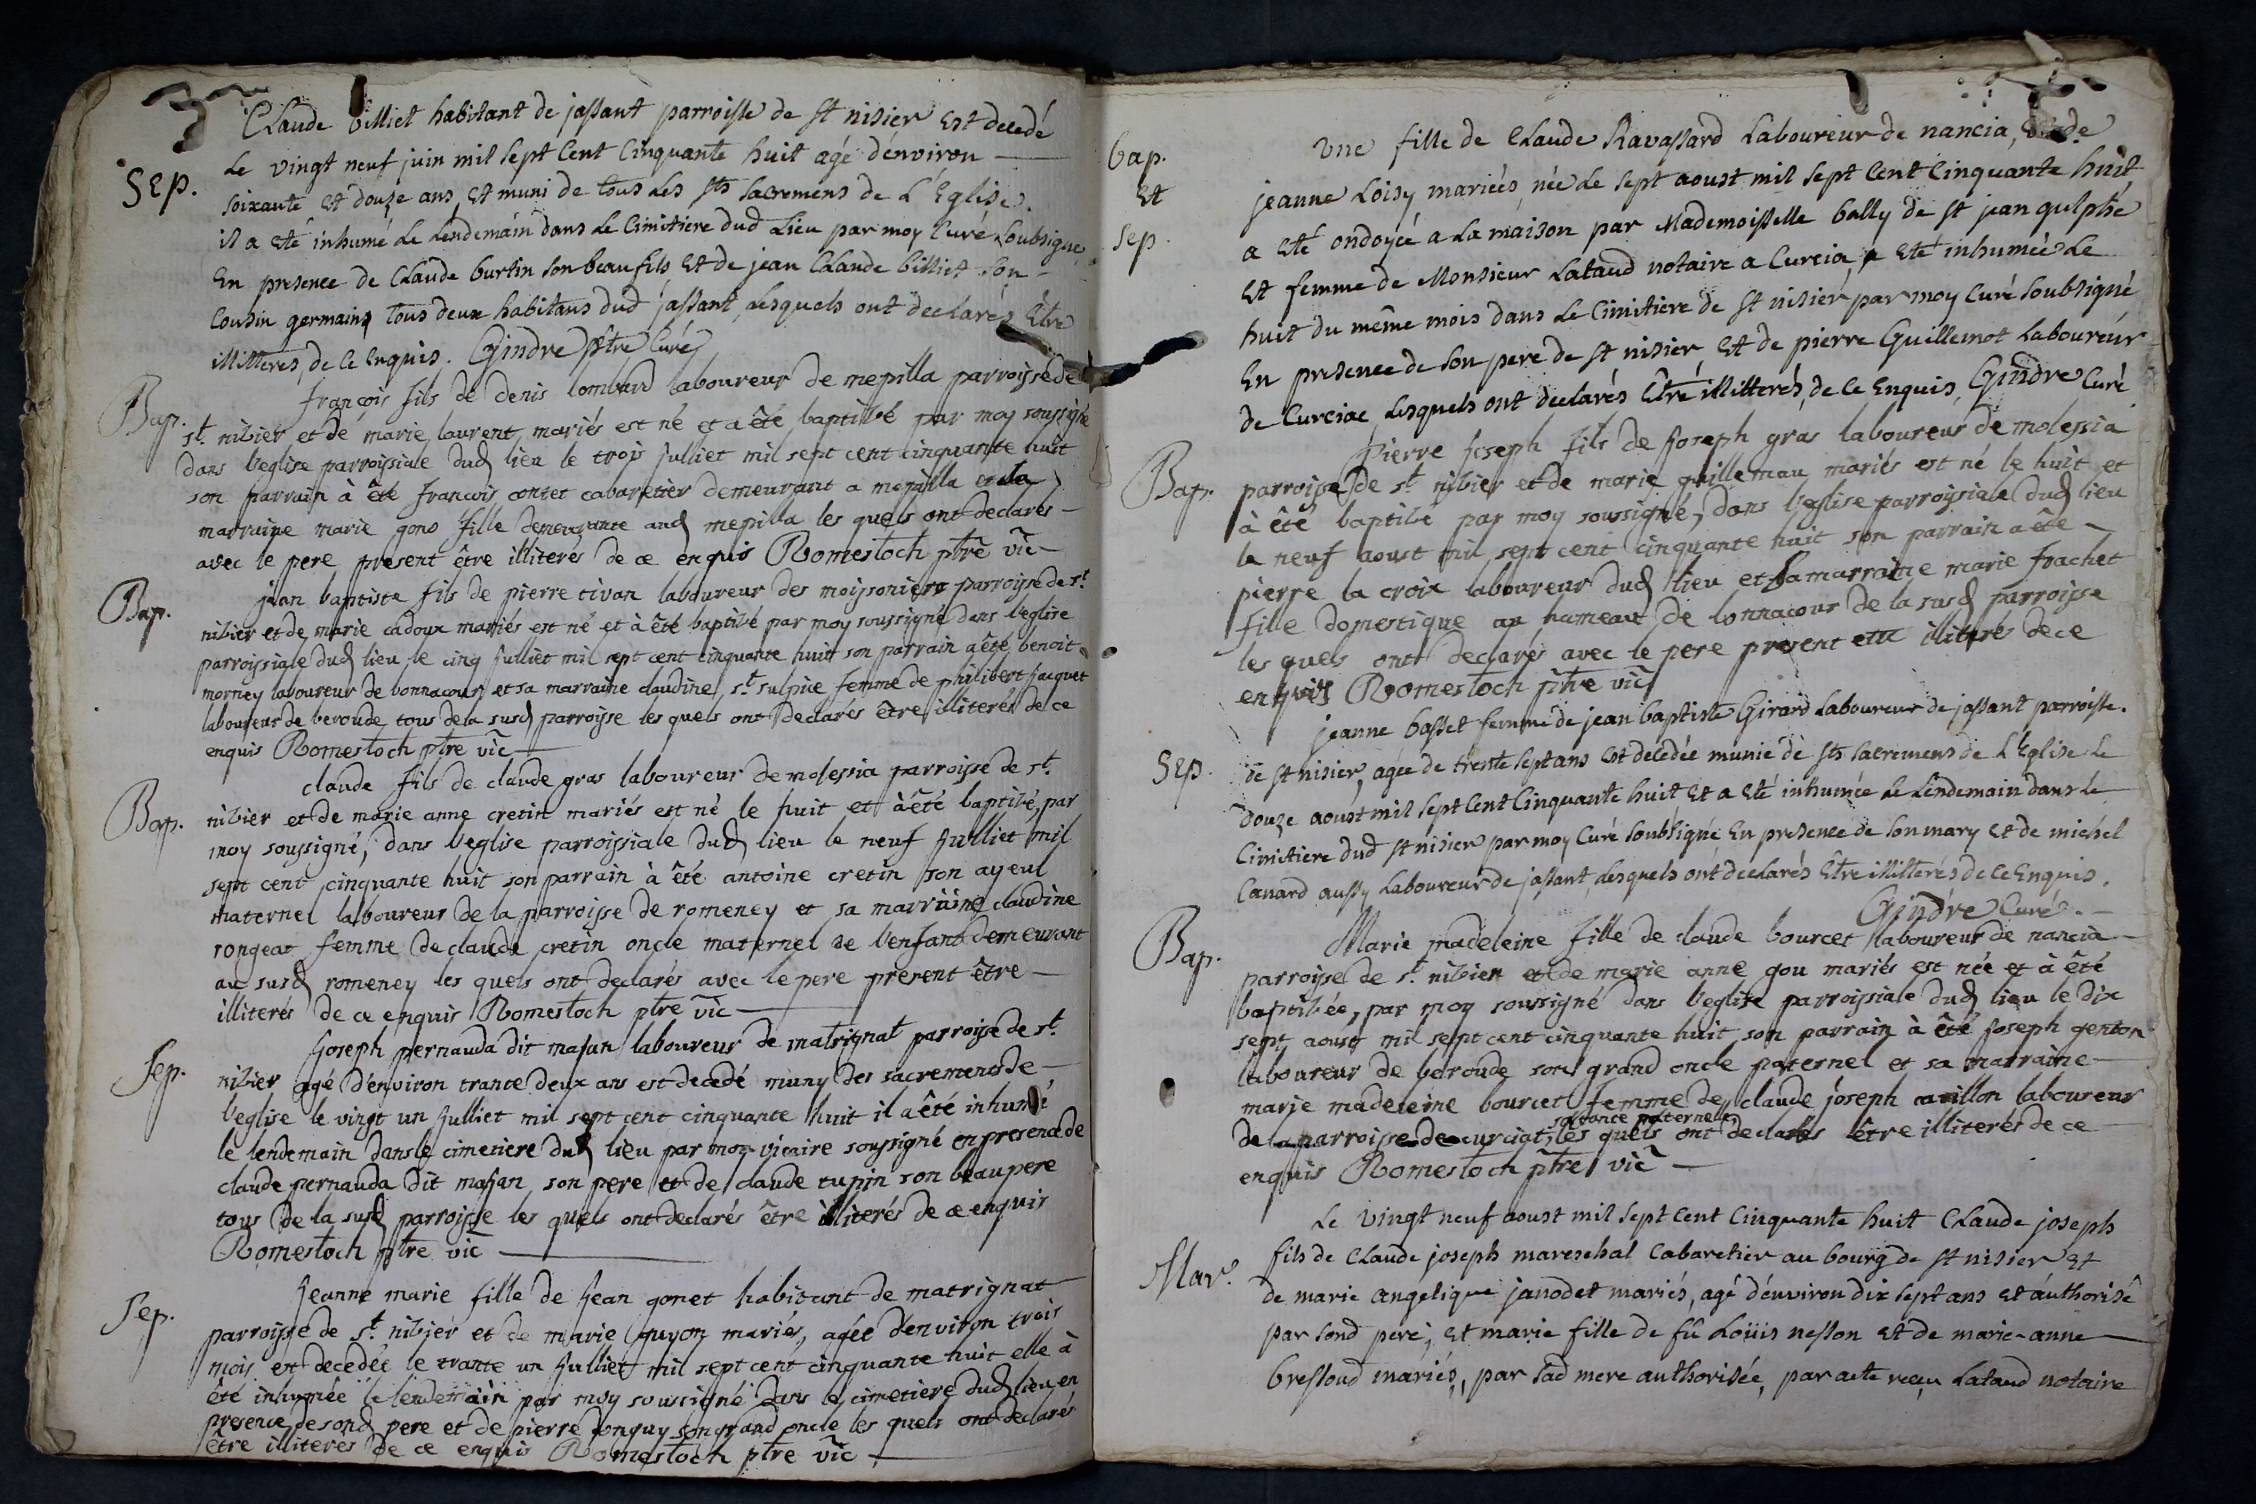 Claude billiet habitant de jassant parroisse de st nisier Est decedé
Sep.
Le vingt neuf juin mil sept Cent Cinquante huit agé denviron
soixante Et douze ans, Et muni de tous Les sts sacremens de L'Eglise.
il a Eté inhumé Le Lendemain dans Le Cimitiere dud Lieu par moy Curé soubsigné
En presence de Claude burtin son beau fils Et de jean Claude billiet son
Cousin germain, tous deux habitans dud jassant, Lesquels ont declarés Etre
illitterés, de Ce Enquis. Gindre ptre Curé
Bap.
françois fils de denis lombard laboureur de mepilla parroisse de
st. nizier et de marie laurent mariés est né et a été baptisé par moy soussigné
dans l'eglise parroissiale dud lieu le trois juilliet mil sept cent cinquante huit
son parrain à été francois contet cabaretier demeurant a mepilla et la
marraine marie gono fille demeurante aud mepilla les quels ont declarés
avec le pere present être illiterés de ce enquis Romestoch ptre vic
Bap.
jean baptiste fils de pierre tivan laboureur des moissoniers parroisse de st.
nizier et de marie cadoux mariés est né et à été baptisé par moy soussigné dans l'eglise
parroissiale dud lieu le cinq juilliet mil sept cent cinquante huit son parrain a été benoit
morney laboureur de bonnacour et sa marraine claudine st. sulpice femme de philibert jacquet
laboureur de beroude tous de la susd parroisse les quels ont declarés être illiterés de ce
enquis Romestoch ptre vic
Bap.
claude fils de claude gras laboureur de molessia parroisse de st.
nizier et de marie anne cretin mariés est né le huit et à été baptisé, par
moy soussigné, dans l'eglise parroissiale dud lieu le neuf juilliet mil
sept cent cinquante huit son parrain à été antoine cretin son ayeul
maternel laboureur de la parroisse de romeney et sa marraine claudine
rongeat femme de claude cretin oncle maternel de l'enfant demeurant
au susd romeney les quels ont declarés avec le pere present être
illiterés de ce enquis Romestoch ptre vic
Sep.
Joseph pernauda dit majan laboureur de matrignat parroisse de st.
nizier agé d'environ trante deux ans est decedé muny des sacremens de
l'eglise le vingt un juilliet mil sept cent cinquante huit il a été inhumé
le lendemain dans le cimetiere dud lieu par moy vicaire soussigné en presence de
claude pernauda dit majan son pere et de claude tupin son beau pere
tous de la susd parroisse les quels ont declarés être illiterés de ce enquis
Romestoch ptre vic
Sep.
Jeanne marie fille de jean gonet habitant de matrignat
parroisse de st. nizier et de marie guyon mariés, agée d'environ trois
mois est decedée le trante un juilliet mil sept cent cinquante huit elle à
été inhumée le lendemain par moy soussigné dans le cimetiere dud lieu en
presence de sond pere et de pierre longuy son grand oncle les quels ont declarés
être illiterés de ce enquis Romestoch ptre vic
bap.
Et
Sep.
Une fille de Claude Ravassard Laboureur de nancia, Et de
jeanne Loisy mariés, née Le sept aoust mil sept Cent Cinquante huit
a Eté ondoyée a La maison par Mademoisselle bally de st jean qulphe
Et femme de Monsieur Lataud notaire a Curcia, a Eté inhumée Le
huit du même mois dans Le Cimitiere de st nisier par moy Curé soubsigné
En presence de son pere de st nisier Et de pierre Guillemot Laboureur
de Curciac, Lesquels ont declarés Etre illitterés, de Ce Enquis. Gindre Curé
Bap.
Pierre joseph fils de joseph gras laboureur de molessia
parroisse de st. nizier et de marie guillemau mariés est né le huit et
à été baptisé par moy soussigné, dans l'eglise parroissiale dud lieu
le neuf aoust mil sept cent cinquante huit son parrain a été
pierre la croix laboureur dud lieu et sa marraine marie frachet
fille domestique au hameau de bonnacour de la susd parroisse
les quels ont declarés avec le pere present etre illiterés de ce
enquis Romestoch ptre vic
Sep.
jeanne basset femme de jean baptiste Girard Laboureur de jassant parroisse.
de st nisier, agée de trente sept ans Est decedée munie de sts sacremens de L'Eglise Le
douze aoust mil sept Cent Cinquante huit Et a Eté inhumée Le Lendemain dans Le
Cimitiere dud st nisier par moy Curé soubsigné En presence de son mary Et de michel
Canard aussy Laboureur de jassant, Lesquels ont declarés Etre illitterés de Ce Enquis.
Gindre Curé.
Bap.
Marie madeleine fille de claude bourcet laboureur de nancia
parroisse de st. nizier et de marie anne gou mariés est née et à été
baptisée, par moy soussigné dans l'eglise parroissiale dud lieu le dix
sept aoust mil sept cent cinquante huit son parrain à été joseph genton
laboureur de beroude son grand oncle paternel et sa marraine
marie madeleine bourcet femme de claude joseph carillon laboureur
sa tante paternelle
de la parroisse de curciat, les quels ont declarés être illiterés de ce
enquis Romestoch ptre vic
Mar.
Le vingt neuf aoust mil sept Cent Cinquante huit Claude joseph
fils de Claude joseph mareschal Cabaretier au bourg de st nisier Et
de marie angelique janodet mariés, agé d'environ dix sept ans Et authorisé
par sond pere, Et marie fille de fû Loüis nesson Et de marie-anne
bressoud mariés, par sad mere authorisée, par acte reçu Lataud notaire